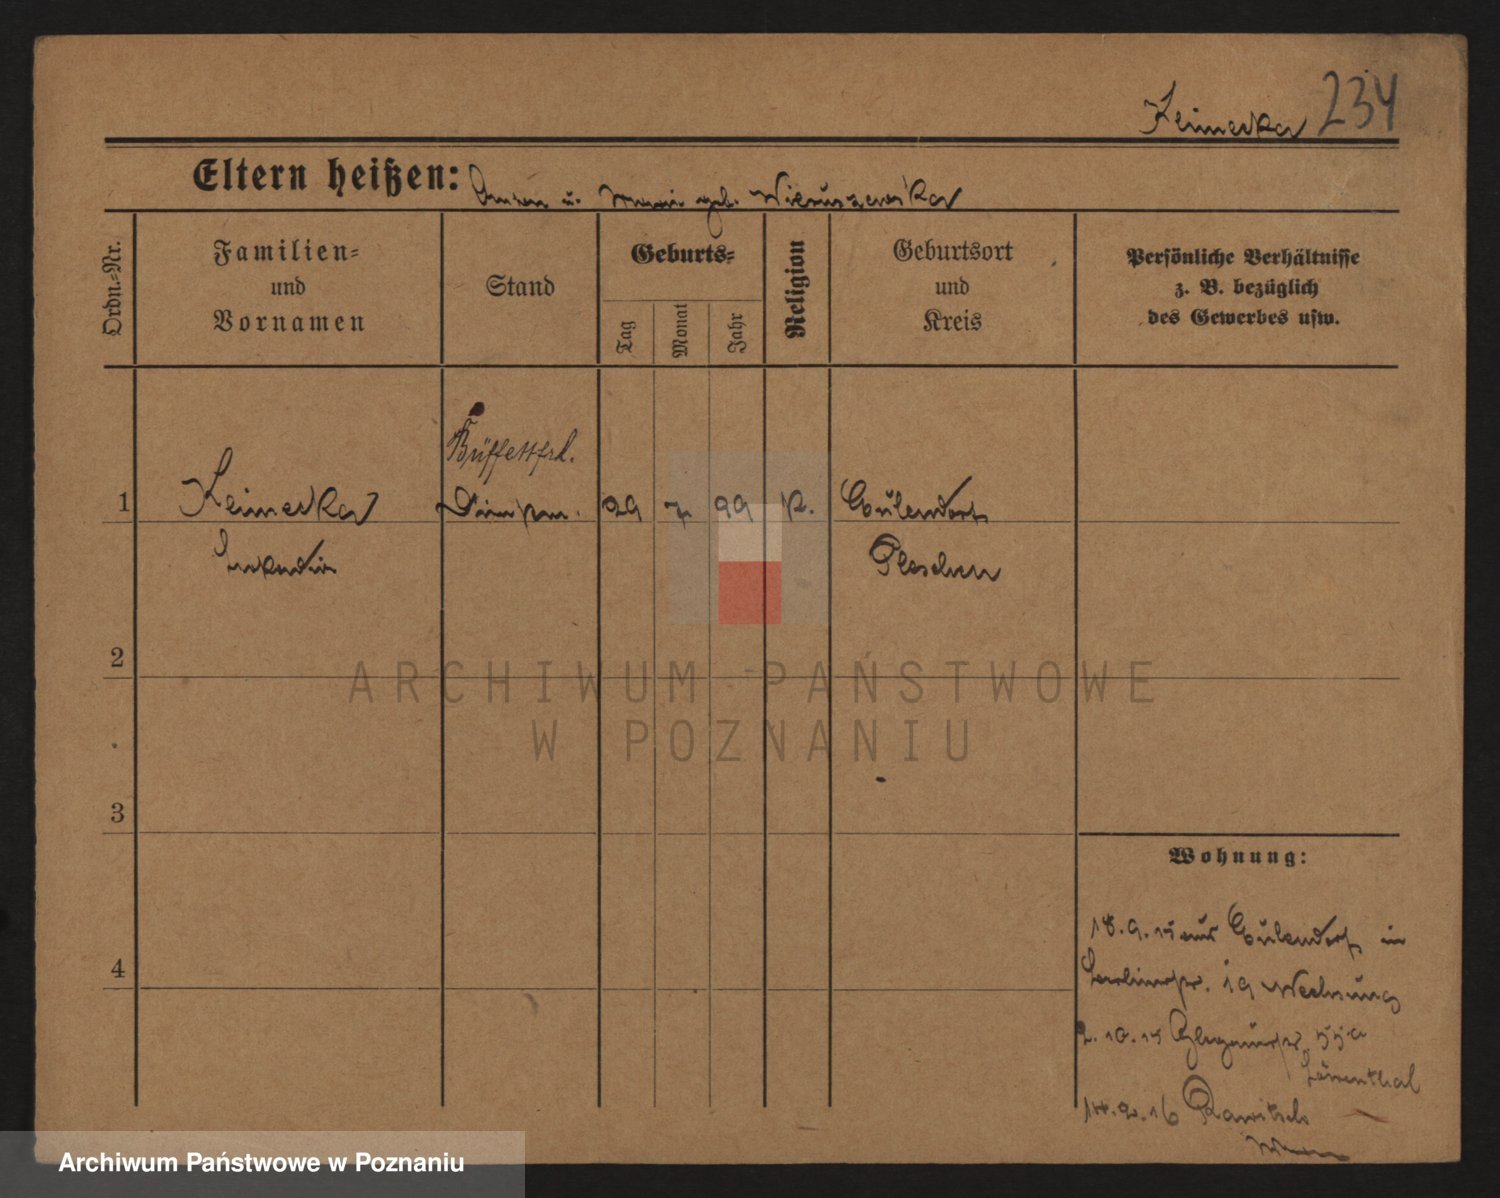 234
Eltern heißen: u. geb. Wieruszewska
Ordn.-Nr.
Familien-
und
Vornamen
Stand
Geburts-
Tag
Monat
Jahr
Religion
Geburtsort
und
Kreis
Persönliche Verhältnisse
z. B. bezüglich
des Gewerbes usw.
Büffettfrl.
1 29 7 99 K. Eulendorf
Pleschen
2
3
4
Wohnung:
18.9.15 aus Eulendorf in
19
2.10.15 55a
Löwenthal
14.2.16 Rawitsch
ARCHIWUM PAŃSTWOWE
W POZNANIU
Archiwum Państwowe w Poznaniu